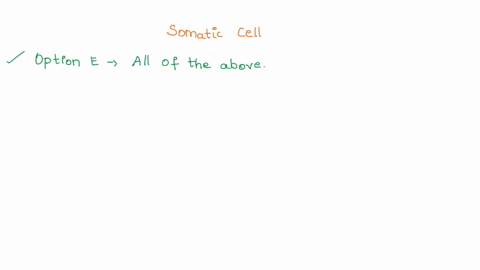 Somatic Cell
✓ Option E → All of the above.